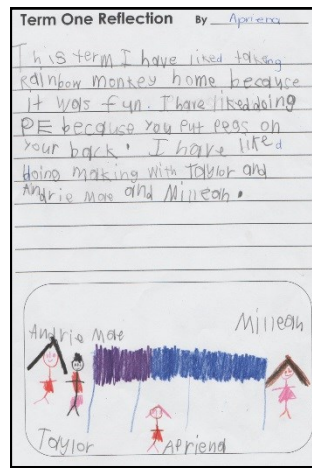 Term One Reflection By Apriena
This term I have liked taking
rainbow monkey home because
it was fun. I have liked doing
PE because you put pegs on
your back. I have liked
doing making with Taylor and
Andrie Mae and Milleah.
Andrie Mae
Milleah
Taylor
Afriend